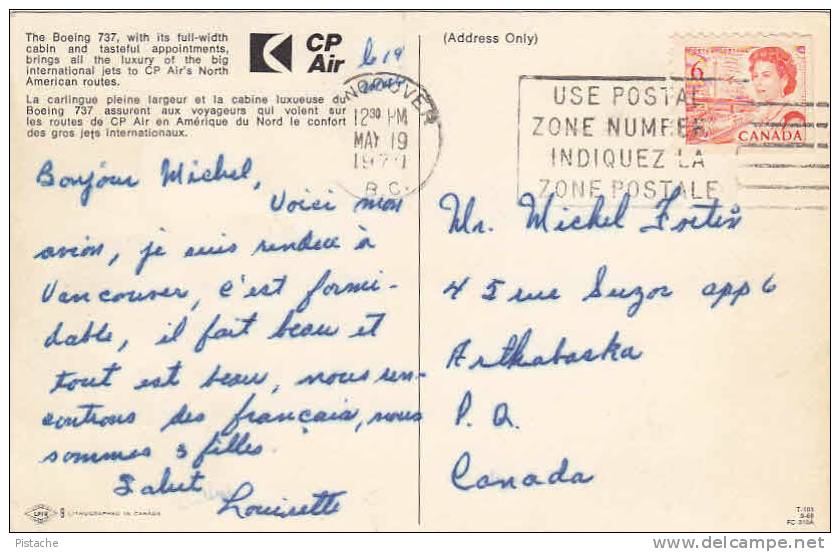 The Boeing 737, with its full-width
cabin and tasteful appointments,
brings all the luxury of the big
international jets to CP Air's North
American routes.
La carlingue pleine largeur et la cabine luxueuse du
Boeing 737 assurent aux voyageurs qui volent sur
les routes de CP Air en Amérique du Nord le confort
des gros jets internationaux.
CP
Air
VANCOUVER
12 30 PM
MAY 19
B.C.
Bonjour Michel,
Voici mon
avion, je suis rendue à
Vancouver, c'est formi-
dable, il fait beau et
tout est beau, nous ren-
controns des français, nous
sommes 3 filles
Salut
Louisette
LITHOGRAPHED IN CANADA
(Address Only)
USE POSTAL
ZONE NUMBER
INDIQUEZ LA
ZONE POSTALE
6
CANADA
Mr. Michel Fortin
45 rue Suzor app 6
Arthabaska
P. Q.
Canada
T-103
FC 310A
Pistache
www.delcampe.net